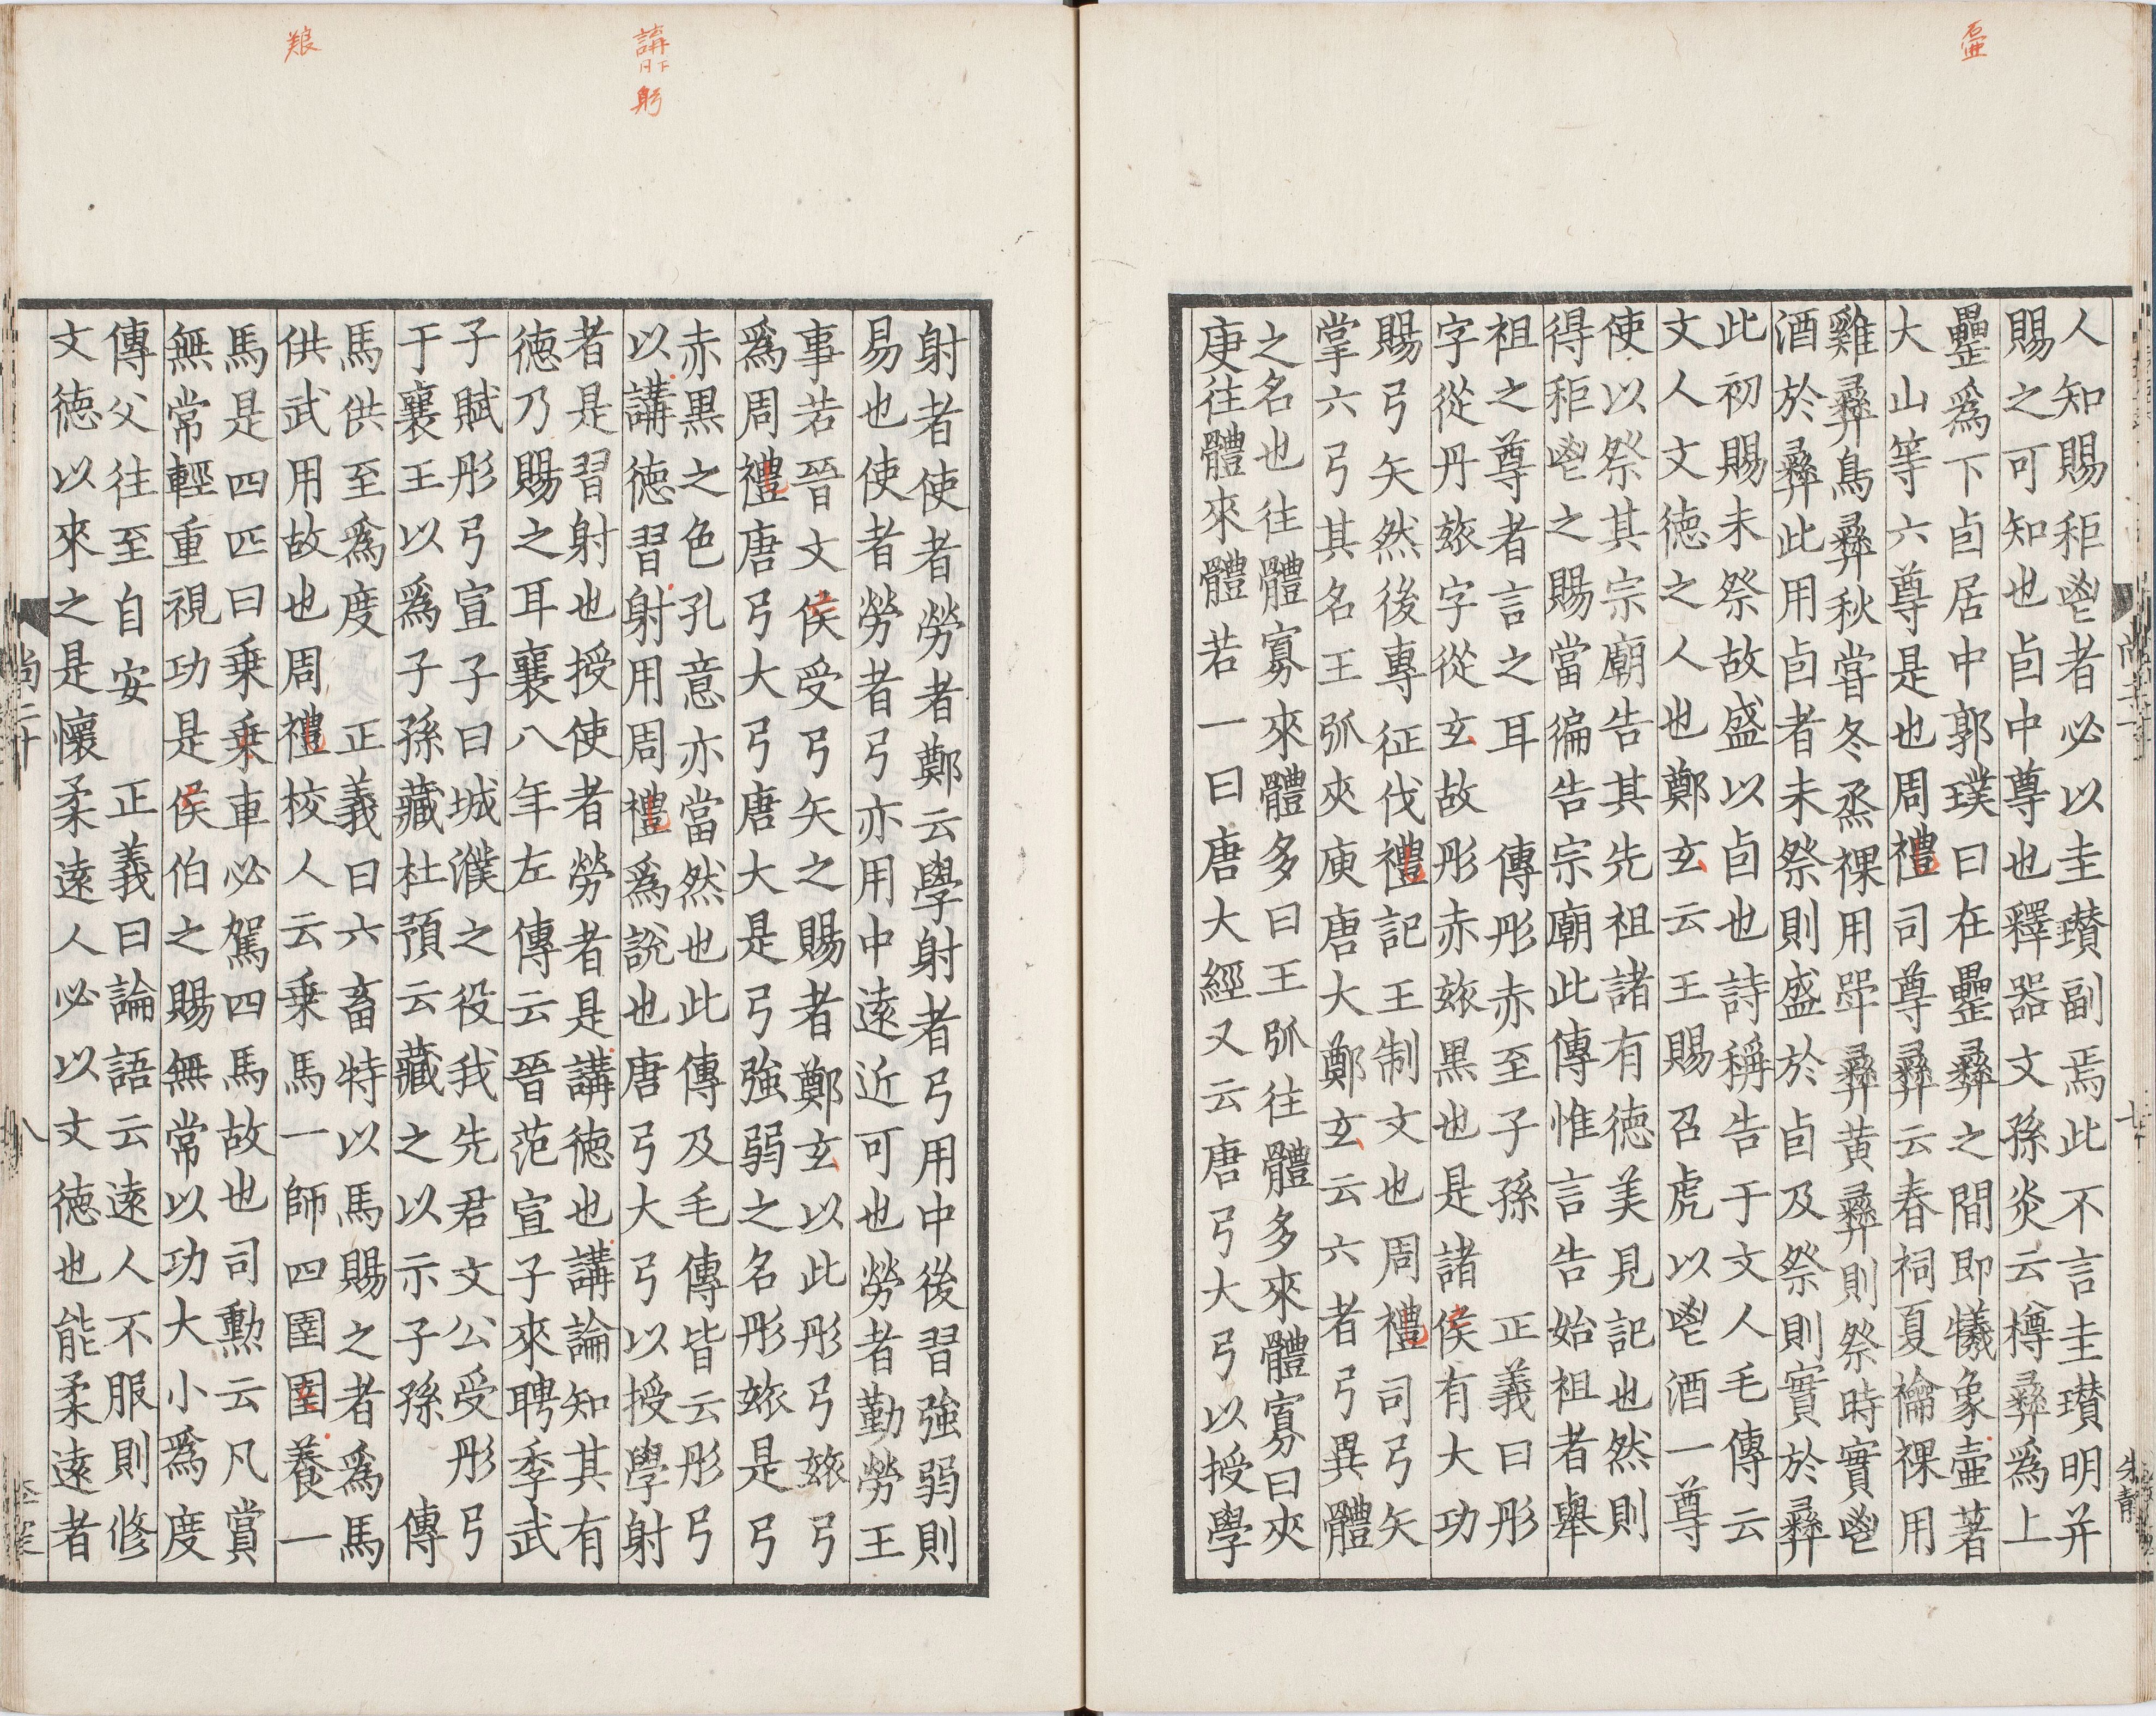 壷
人知賜秬鬯者必以圭瓚副焉此不言圭瓚明并
賜之可知也卣中尊也釋器文孫炎云樽彝爲上
罍爲下卣居中郭璞曰在罍彝之間即犧象壷著
大山等六尊是也周禮司尊彝云春祠夏禴祼用
雞彝鳥彝秋甞冬烝祼用斝彝黃彝則祭時實鬯
酒於彝此用卣者未祭則盛於卣及祭則實於彝
此初賜未祭故盛以卣也詩稱告于文人毛傳云
文人文徳之人也鄭玄云王賜召虎以鬯酒一尊
使以祭其宗廟告其先祖諸有徳美見記也然則
得秬鬯之賜當徧告宗廟此傳惟言告始祖者舉
祖之尊者言之耳　傳彤赤至子孫　正義曰彤
字從丹玈字從玄故彤赤玈黑也是諸侯有大功
賜弓矢然後專征伐禮記王制文也周禮司弓矢
掌六弓其名王弧夾庾唐大鄭玄云六者弓異體
之名也往體寡來體多曰王弧往體多來體寡曰夾
庾往體來體若一曰唐大經又云唐弓大弓以授學
講
月下
躬
艱
射者使者勞者鄭云學射者弓用中後習強弱則
易也使者勞者弓亦用中遠近可也勞者勤勞王
事若晉文侯受弓矢之賜者鄭玄以此彤弓玈弓
爲周禮唐弓大弓唐大是弓強弱之名彤玈是弓
赤黒之色孔意亦當然也此傳及毛傳皆云彤弓
以講徳習射用周禮爲說也唐弓大弓以授學射
者是習射也授使者勞者是講徳也講論知其有
徳乃賜之耳襄八年左傳云晉范宣子來聘季武
子賦彤弓宣子曰城濮之役我先君文公受彤弓
于襄王以爲子孫藏杜預云藏之以示子孫　傳
馬供至爲度　正義曰六畜特以馬賜之者爲馬
供武用故也周禮校人云乗馬一師四圉圉養一
馬是四匹曰乗乗車必駕四馬故也司勲云凡賞
無常輕重視功是侯伯之賜無常以功大小爲度
傳父往至自安　正義曰論語云遠人不服則修
文徳以來之是懷柔遠人必以文徳也能柔遠者
尚二十
八